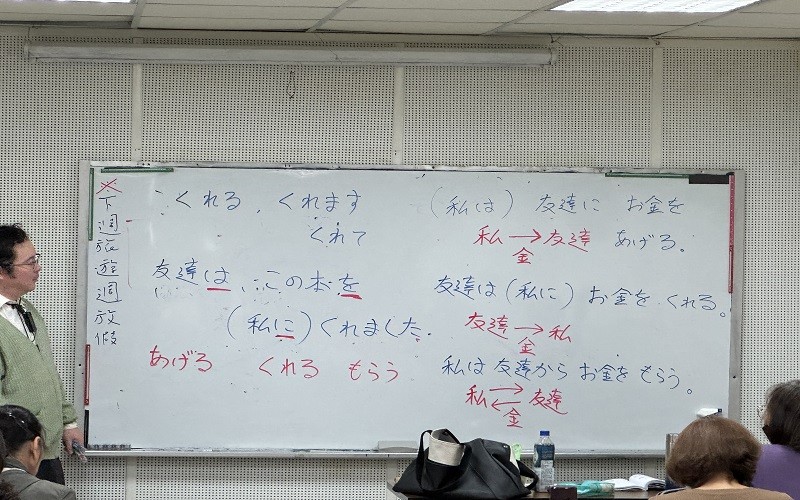 ※下週旅遊週放假
くれる、くれます
くれて
友達は、この本を
(私に)くれました.
あげる くれる もらう
(私は) 友達に お金を
私→友達 あげる。
金
友達は(私に)お金をくれる。
友達→私
金
私は友達からお金をもらう。
私⇄友達
金